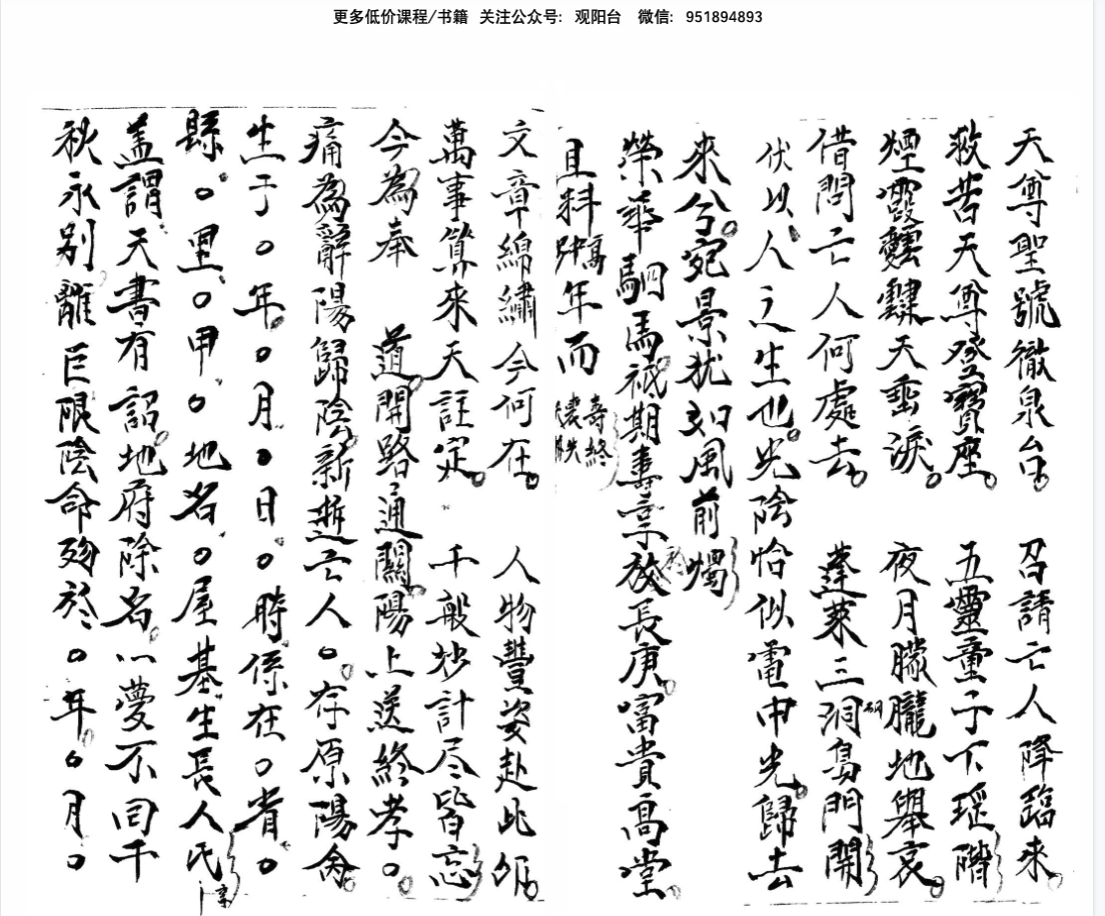 更多低价课程/书籍 关注公众号: 观阳台 微信: 951894893
天尊聖號徹泉台 召請亡人降臨來
救苦天尊登寶座 五靈童子下瑶階
煙霞靉靆天垂淚 夜月朦朧地舉哀
借問亡人何處去 蓬萊三洞島門開
伏以人之生也光陰恰似電中光歸去
來兮宛景犹如風前燭
榮華駟馬祗期壽享於長庚富貴高堂
且料 年而 壽終
文章綿繡今何在 人物豐姿赴此
萬事算來天註定 千般妙計尽皆忘
今為奉 道開路通關陽上送終孝○
痛為辭陽歸陰新逝亡人○存原陽命
生于○年○月○日○時係在○省○
縣○里○甲○地名○屋基生長人氏
盖謂天書有詔地府除名以夢不回千
秋永别離 巨限陰命殁於○年○月○